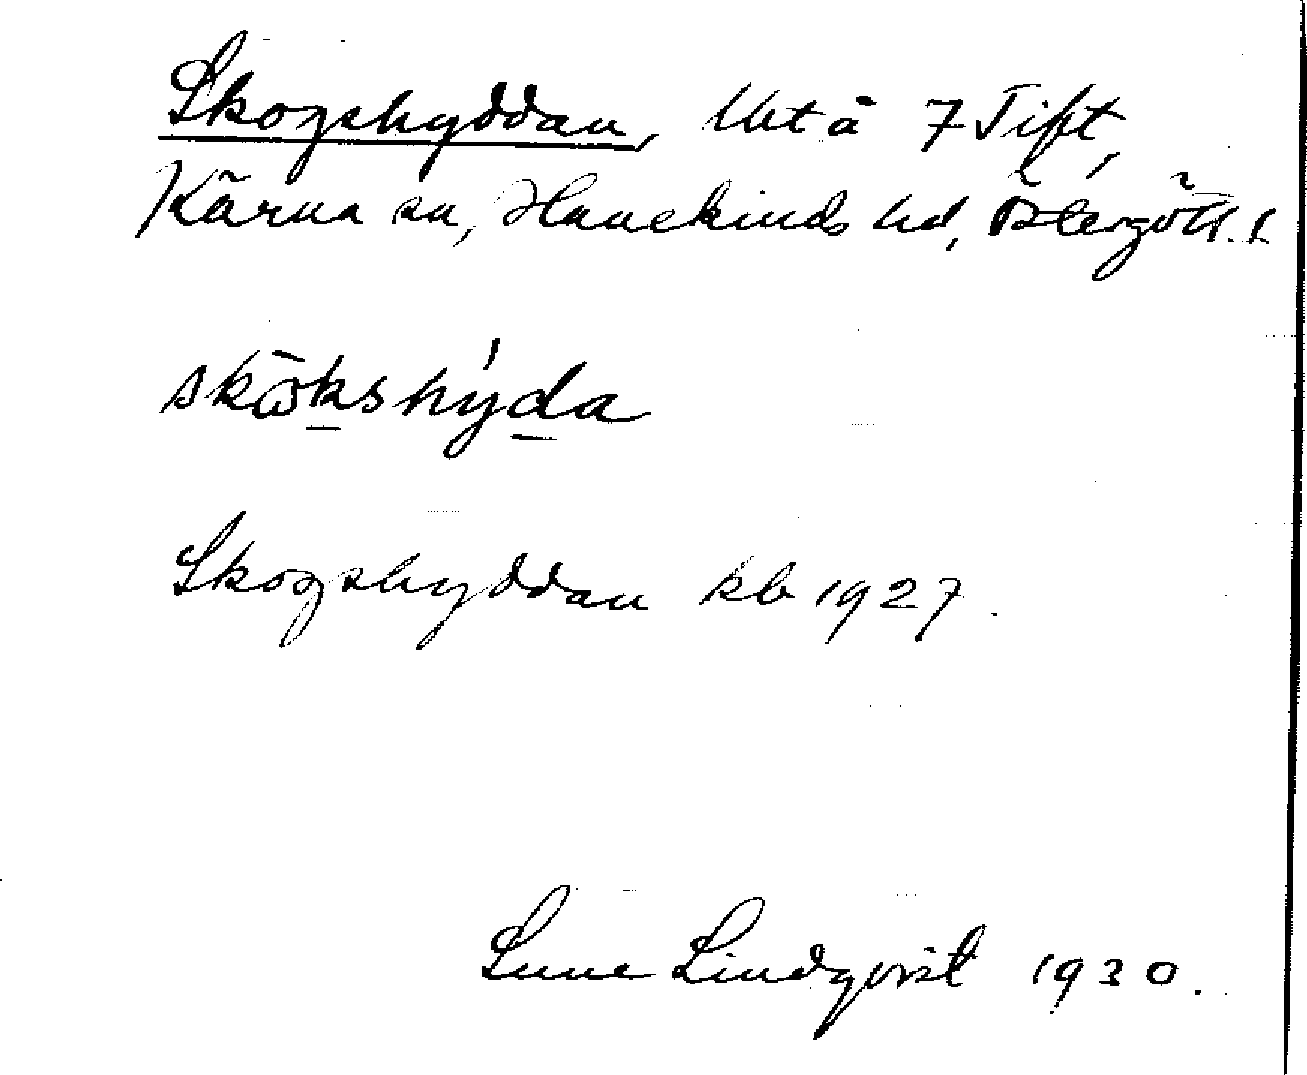 Skogshyddan, lht å 7 Tift,
Kärna sn, Hanekinds hd, Östergötl. l.
skōkshýda
Skogshyddan kb 1927.
Sune Lindqvist 1930.